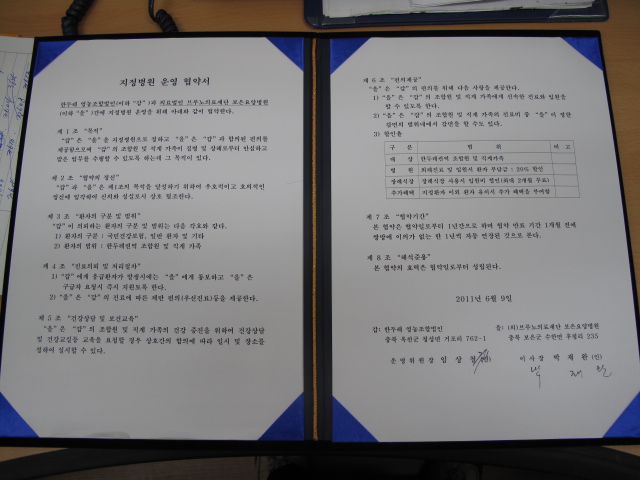 지정병원 운영 협약서
한두레 영농조합법인(이하 "갑")과 의료법인 브루노의료재단 보은요양병원
(이하 "을") 간에 지정병원 운영을 위해 아래와 같이 협약한다.
제 1 조 "목적"
"갑"은 "을"을 지정병원으로 정하고 "을"은 "갑"과 합의된 편의를
제공함으로써 "갑"의 조합원 및 직계 가족이 질병 및 상해로부터 안심하고
맡은 업무를 수행할 수 있도록 하는데 그 목적이 있다.
제 2 조 "협약의 정신"
"갑"과 "을"은 제1조의 목적을 달성하기 위하여 우호적이고 호의적인
정신에 입각하여 신의와 성실로서 상호 협조한다.
제 3 조 "환자의 구분 및 범위"
"갑"이 의뢰하는 환자의 구분 및 범위는 다음 각호와 같다.
1) 환자의 구분 : 국민건강보험, 일반 환자 및 기타
2) 환자의 범위 : 한두레권역 조합원 및 직계 가족
제 4 조 "진료의뢰 및 처리절차"
1) "갑"에게 응급환자가 발생시에는 "을"에게 통보하고 "을"은
구급차 요청시 즉시 지원토록 한다.
2) "을"은 "갑"의 진료에 따른 제반 편의(우선진료)등을 제공한다.
제 5 조 "건강상담 및 보건교육"
"을"은 "갑"의 조합원 및 직계 가족의 건강 증진을 위하여 건강상담
및 건강교실등 교육을 요청할 경우 상호간의 합의에 따라 일시 및 장소를
정하여 실시할 수 있다.
제 6 조 "편의제공"
"을"은 "갑"의 편의를 위해 다음 사항을 제공한다.
1) "을"은 "갑"의 조합원 및 직계 가족에게 신속한 진료와 입원을
할 수 있도록 한다.
2) "을"은 "갑"의 조합원 및 직계 가족의 진료비 중 "을"이 정한
감면의 범위내에서 감면을 할 수도 있다.
3) 할인율
구 분 범 위 비 고
대 상 한두레권역 조합원 및 직계가족
병 원 외래진료 및 입원시 환자 부담금 : 20% 할인
장례식장 장례식장 사용시 일정비 할인(최대 2개월 무료)
추가혜택 지정환자 이외 환자 유치시 추가 혜택을 부여함
제 7 조 "협약기간"
본 협약은 협약일로부터 1년간으로 하며 협약 만료 기간 1개월 전에
쌍방에 이의가 없는 한 1년씩 자동 연장된 것으로 본다.
제 8 조 "해석준용"
본 협약의 효력은 협약일로부터 성립된다.
2011년 6월 9일
갑: 한두레 영농조합법인 을: (의)브루노의료재단 보은요양병원
충북 옥천군 청성면 거포리 762-1 충북 보은군 수한면 후평리 235
운영위원장 임 상 이사장 박 재 환 (인)